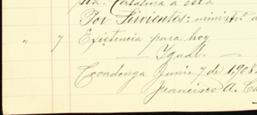 Sta. Catalina a esta
Por Sirvientes: ministr. a
" 7 Existencia para hoy
Igual.
Covadonga Junio 7 de 1908.
Francisco A.